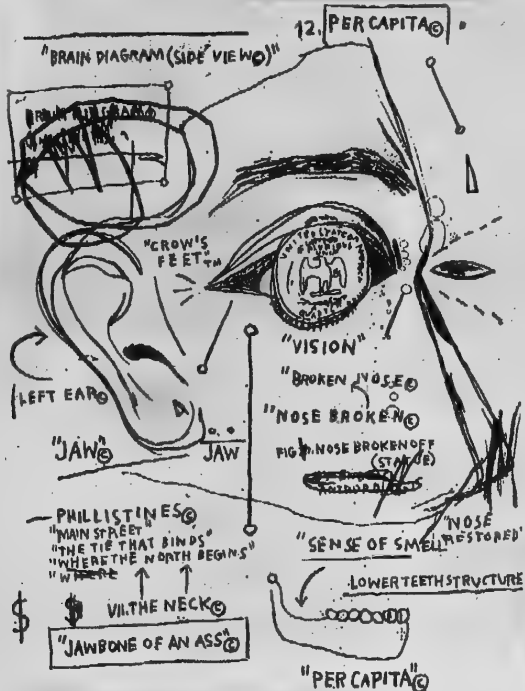 12. PER CAPITA©
"BRAIN DIAGRAM (SIDE VIEW©)"
"CROW'S
FEET"™
UNITED STATES
QUARTER
"VISION"
"BROKEN NOSE©
"NOSE BROKEN©
LEFT EAR©
"JAW"©
JAW
FIG. NOSE BROKEN OFF
(STATUE)
PHILLISTINES©
"MAIN STREET"
"THE TIE THAT BINDS"
"WHERE THE NORTH BEGINS"
"WHERE
"SENSE OF SMELL"
"NOSE
RESTORED"
LOWER TEETH STRUCTURE
$ $
VII. THE NECK©
"JAWBONE OF AN ASS"©
"PER CAPITA"©